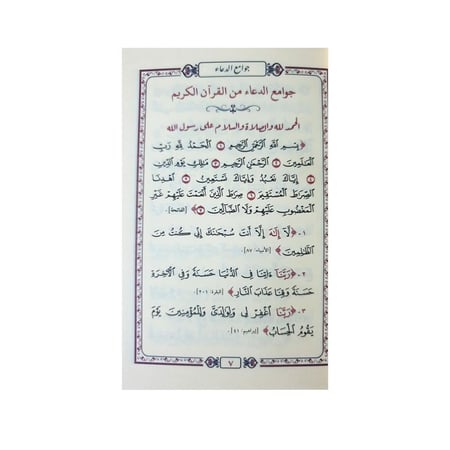 جوامع الدعاء
جوامع الدعاء من القرآن الكريم
الحمد لله والصلاة والسلام على رسول الله
﴿بِسْمِ اللَّهِ الرَّحْمَٰنِ الرَّحِيمِ ۝١ الْحَمْدُ لِلَّهِ رَبِّ
الْعَالَمِينَ ۝٢ الرَّحْمَٰنِ الرَّحِيمِ ۝٣ مَالِكِ يَوْمِ الدِّينِ
۝٤ إِيَّاكَ نَعْبُدُ وَإِيَّاكَ نَسْتَعِينُ ۝٥ اهْدِنَا
الصِّرَاطَ الْمُسْتَقِيمَ ۝٦ صِرَاطَ الَّذِينَ أَنْعَمْتَ عَلَيْهِمْ غَيْرِ
الْمَغْضُوبِ عَلَيْهِمْ وَلَا الضَّالِّينَ ۝٧﴾ [الفاتحة].
١- ﴿لَا إِلَٰهَ إِلَّا أَنتَ سُبْحَانَكَ إِنِّي كُنتُ مِنَ
الظَّالِمِينَ﴾ [الأنبياء: ٨٧].
٢- ﴿رَبَّنَا آتِنَا فِي الدُّنْيَا حَسَنَةً وَفِي الْآخِرَةِ
حَسَنَةً وَقِنَا عَذَابَ النَّارِ﴾ [البقرة: ٢٠١].
٣- ﴿رَبَّنَا اغْفِرْ لِي وَلِوَالِدَيَّ وَلِلْمُؤْمِنِينَ يَوْمَ
يَقُومُ الْحِسَابُ﴾ [إبراهيم: ٤١].
٧